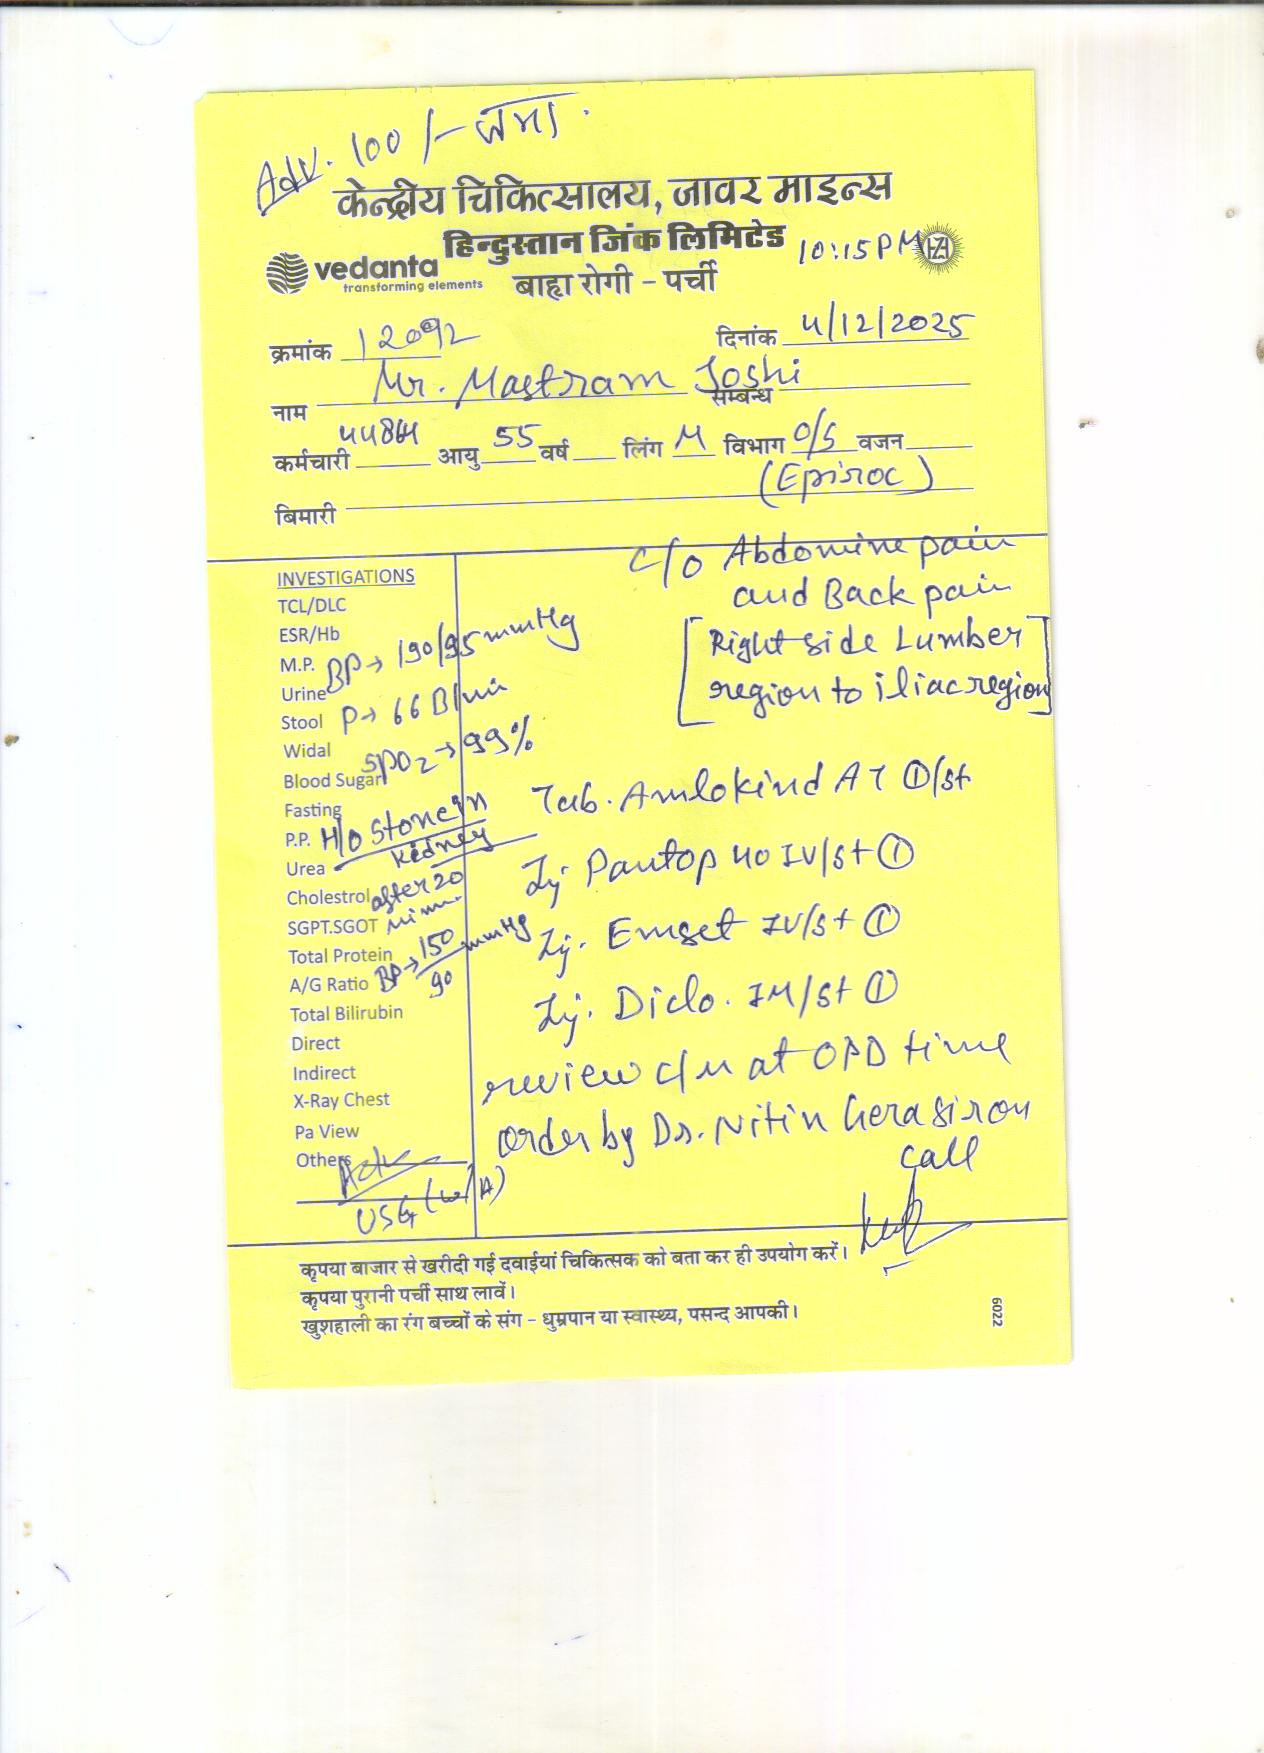 Adv. 100/- जमा.
केन्द्रीय चिकित्सालय, जावर माइन्स
हिन्दुस्तान जिंक लिमिटेड
10:15 PM
vedanta
transforming elements
बाह्य रोगी - पर्ची
क्रमांक 12092 दिनांक 4/12/2025
नाम Mr. Mastram Joshi सम्बन्ध
कर्मचारी 44864 आयु 55 वर्ष लिंग M विभाग O/S वजन
(Epiroc)
बिमारी
c/o Abdomine pain
and Back pain
[Right side Lumber
region to iliac region]
INVESTIGATIONS
TCL/DLC
ESR/Hb
M.P. BP→ 190/95 mmHg
Urine
Stool P→ 66 B/min
Widal
Blood Sugar SPO2→99%
Fasting
P.P. H/O Stone in
kidney
Urea
Cholestrol after 20
SGPT.SGOT min
Total Protein
A/G Ratio BP→ 150/90 mmHg
Total Bilirubin
Direct
Indirect
X-Ray Chest
Pa View
Others Adv
USG (w/A)
Tab. Amlokind AT ①/st
Inj. Pantop 40 IV/st ①
Inj. Emset IV/st ①
Inj. Diclo. IM/st ①
review c/m at OPD time
order by Dr. Nitin Gera sir on
call
कृपया बाजार से खरीदी गई दवाईयां चिकित्सक को बता कर ही उपयोग करें।
कृपया पुरानी पर्ची साथ लावें।
खुशहाली का रंग बच्चों के संग - धुम्रपान या स्वास्थ्य, पसन्द आपकी।
6022